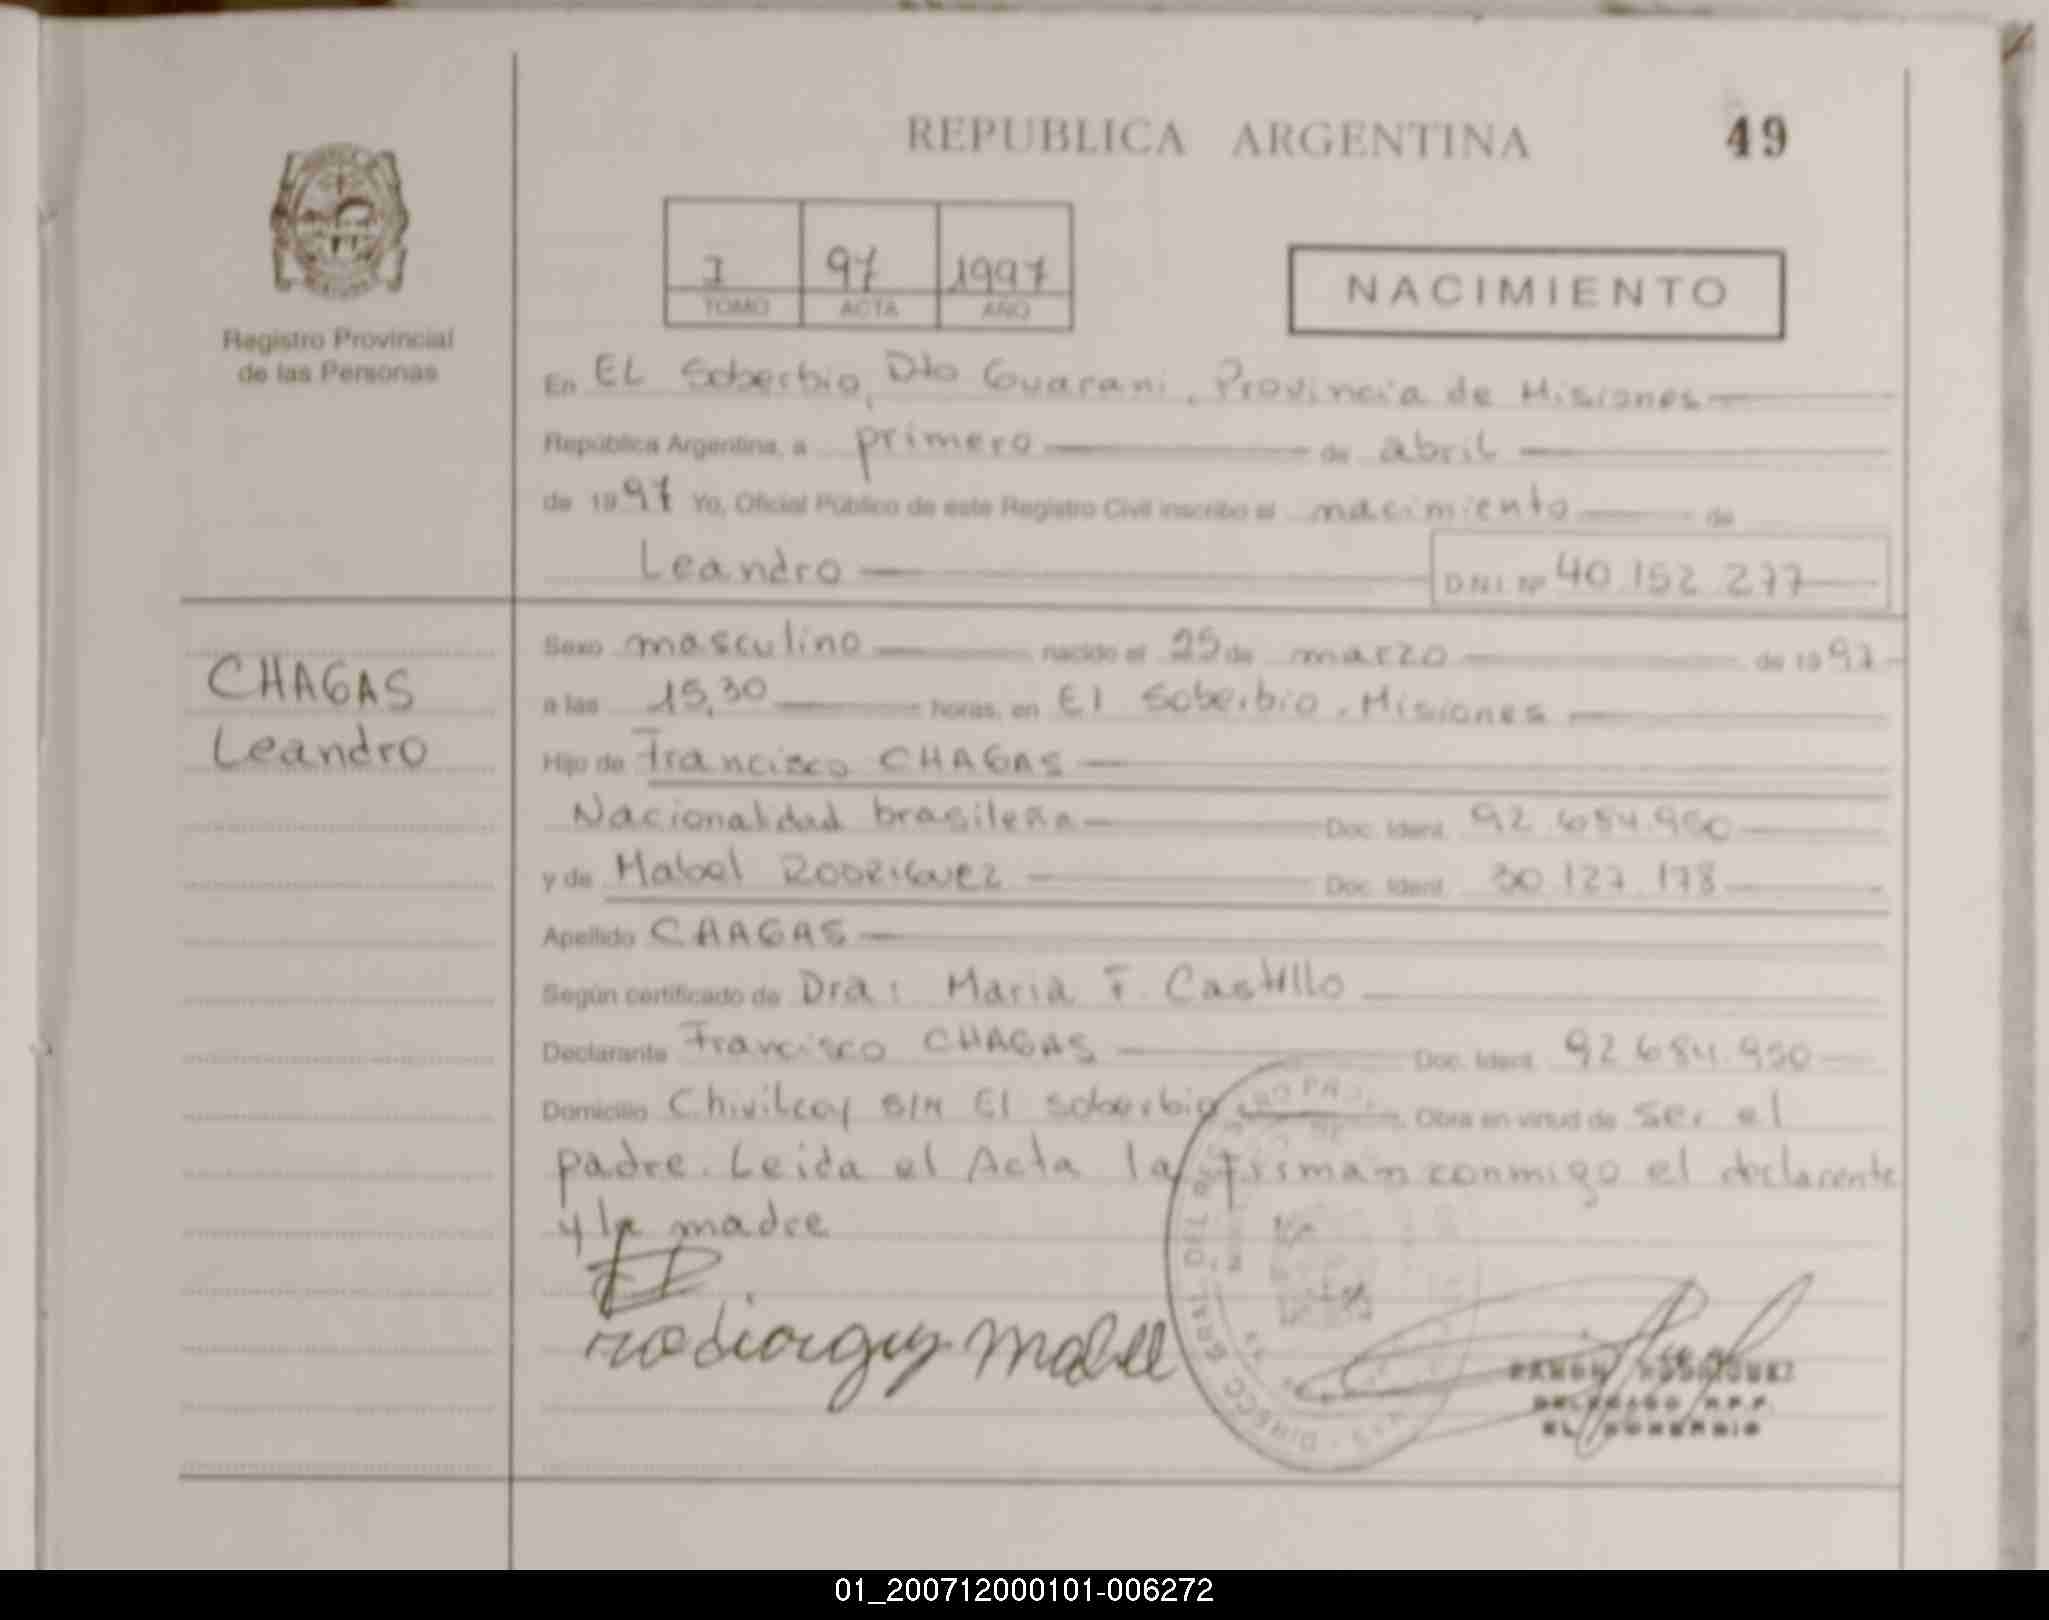 REPUBLICA ARGENTINA
49
I 97 1997
TOMO ACTA AÑO
NACIMIENTO
Registro Provincial
de las Personas
En EL Soberbio, Dto Guarani, Provincia de Misiones
República Argentina, a primero de abril
de 1997 Yo, Oficial Público de este Registro Civil inscribo el nacimiento de
Leandro DNI Nº 40.152.277
CHAGAS
Leandro
Sexo masculino nacido el de marzo de 1997
a las 15,30 horas, en El Soberbio, Misiones
Hijo de Francisco CHAGAS
Nacionalidad brasileña Doc. Ident. 92.684.950
y de Mabel RODRIGUEZ Doc. Ident. 30.127.178
Apellido CHAGAS
Según certificado de Dra: Maria F. Castillo
Declarante Francisco CHAGAS Doc. Ident. 92.684.950
Domicilio Chivilcoy S/N El soberbio Obra en virtud de ser el
padre. Leida el Acta la firman conmigo el declarante
y la madre
RAMON RODRIGUEZ
DELEGADO R.P.P.
EL SOBERBIO
01_200712000101-006272